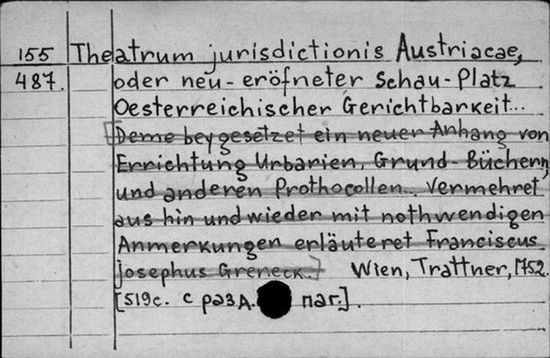 155 Theatrum jurisdictionis Austriacae,
487. oder neu-eröfneter Schau-Platz
Oesterreichischer Gerichtbarkeit...
[Deme beygesetzet ein neuer Anhang von
Errichtung Urbarien, Grund-Büchern,
und anderen Prothocollen... Vermehret
aus hin und wieder mit nothwendigen
Anmerkungen erläuteret Franciscus
Josephus Greneck.] Wien, Trattner, 1752.
[519c. с разд. паг.].